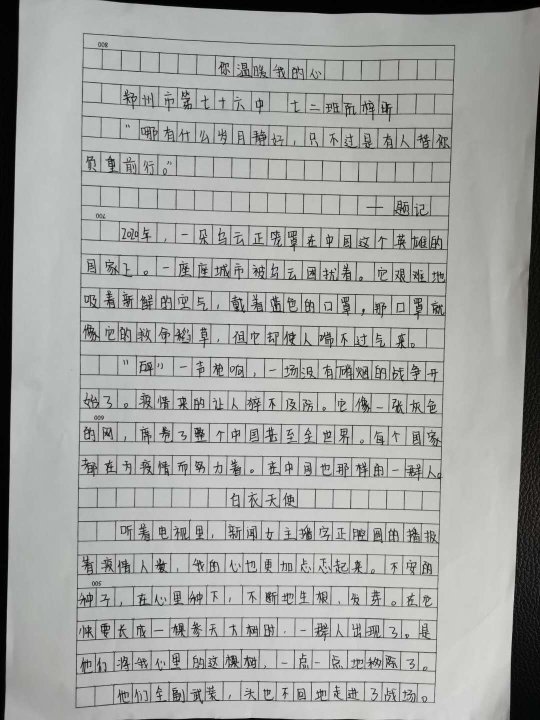 008
你温暖我的心
郑州市第七十六中 七二班 梓昕
“哪有什么岁月静好，只不过是有人替你
负重前行。”
——题记
006
2020年，一朵乌云正笼罩在中国这个英雄的
国家上。一座座城市被乌云困扰着。它艰难地
吸着新鲜的空气，戴着蓝色的口罩，那口罩就
像它的救命稻草，但它却使人喘不过气来。
“砰”一声炮响，一场没有硝烟的战争开
始了。疫情来的让人猝不及防。它像一张灰色
009
的网，席卷了整个中国甚至全世界。每个国家
都在为疫情而努力着。在中国也那样的一群人。
白衣天使
听着电视里，新闻女主播字正腔圆的播报
着疫情人数，我的心也更加忐忑起来。不安的
005
种子，在心里种下，不断地生根、发芽。在它
快要长成一棵参天大树时，一群人出现了。是
他们将我心里的这棵树，一点一点地移除了。
他们全副武装，头也不回地走进了战场。